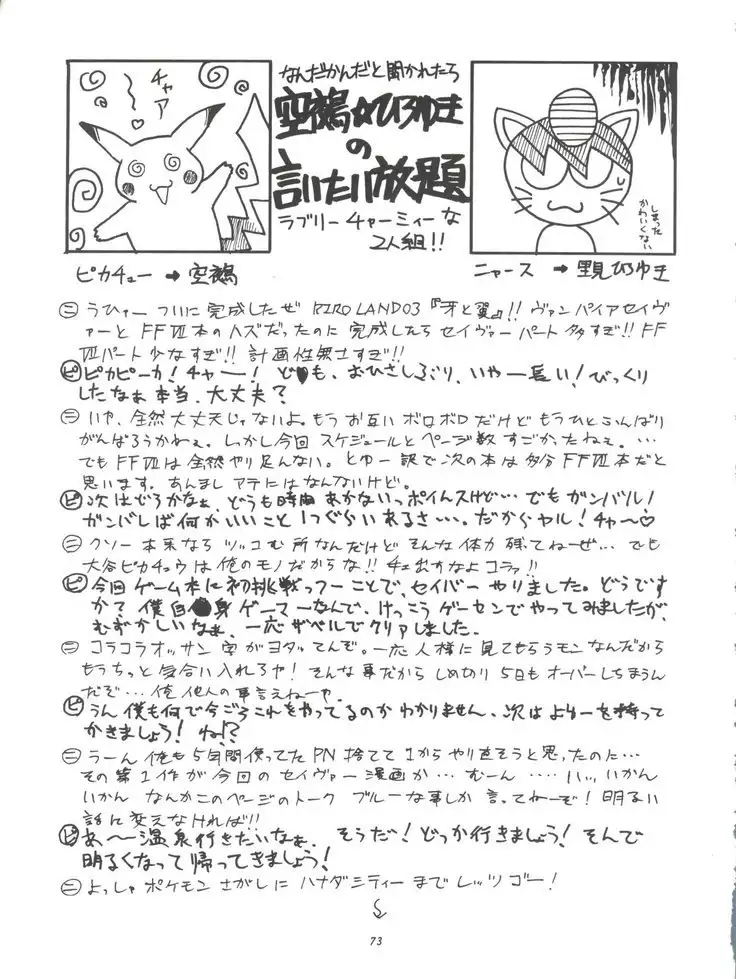 チャア
〜♡
ピカチュー → 空鵺
なんだかんだと聞かれたら
空鵺☆ひろゆき
の
言いたい放題
ラブリーチャーミィーな
2人組!!
しまった
かわいくない
ニャース → 里見ひろゆき
㊁ うひゃー ついに完成したぜ RIRO LAND03『牙と翼』!! ヴァンパイアセイヴ
ァーとFFⅦ本のハズだったのに完成したらセイヴァーパート多すぎ!! FF
Ⅶパート少なすぎ!! 計画性無さすぎ!!
ピ ピカピーカ! チャー! ども、おひさしぶり、いやー長い! びっくり
したなぁ本当、大丈夫?
㊁ いや、全然大丈夫じゃないよ。もうお互いボロボロだけどもうひとふんばり
がんばろうかねぇ。しかし今回スケジュールとページ数すごかったねぇ。…
でもFFⅦは全然やり足んない。とゆー訳で次の本は多分FFⅦ本だと
思います。あんましアテにはなんないけど。
ピ 次はどうかなぁ、どうも時間あかないっポイんスけど…でもガンバル!
ガンバレば何かいいこと1つぐらいあるさ…。だからヤル! チャ〜♡
㊁ クソー本来ならツッコむ所なんだけどそんな体力残ってねーぜ…でも
大谷ピカチュウは俺のモノだからな!! チェ出すなよコラァ!!
ピ 今回ゲーム本に初挑戦っつーことで、セイバーやりました。どうです
か? 僕自身ゲーマーなんで、けっこうゲーセンでやってみましたが、
むずかしいなぁ、一応ザベルでクリアしました。
㊁ コラコラオッサン字がヨタってんぞ。一応人様に見てもらうモンなんだから
もうちっと気合い入れろヤ! そんな事だからしめ切り5日もオーバーしちまうん
だぞ…俺他人の事言えねーや
ピ うん僕も何で今ごろこれをやってるのかわかりません、次はよゆーを持って
かきましょう! ね!?
㊁ うーん俺も5年間使ってたPN捨てて1からやり直そうと思ったのに…
その第1作が今回のセイヴァー漫画か…むーん …… いいいかん
いかん なんかこのページのトーク ブルーな事しか言ってねーぞ! 明るい
話に変えなければ!!
ピ あ〜温泉行きたいなぁ、そうだ! どっか行きましょう! そんで
明るくなって帰ってきましょう!
㊁ よっしゃポケモンさがしにハナダシティーまでレッツゴー!
73